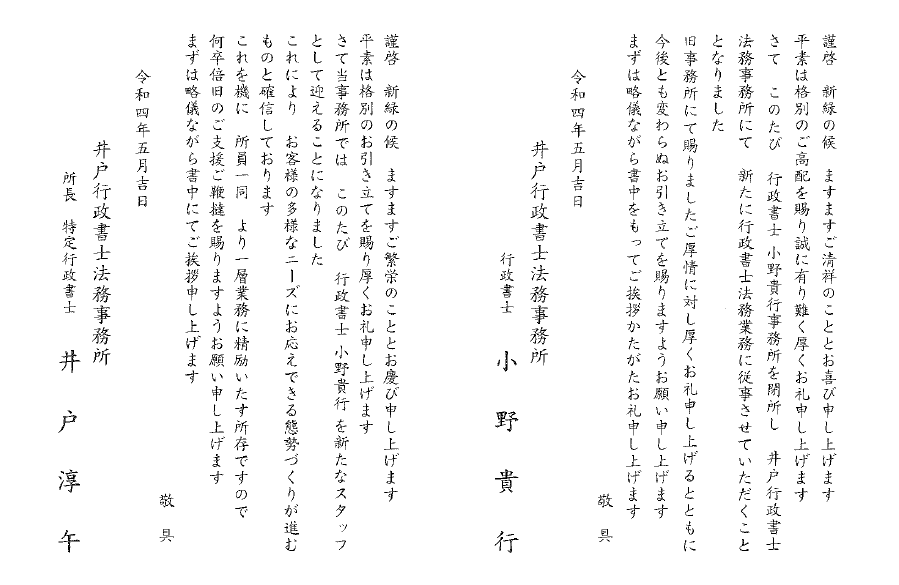 謹啓　新緑の候　ますますご清祥のこととお喜び申し上げます
平素は格別のご高配を賜り誠に有り難く厚くお礼申し上げます
さて　このたび　行政書士 小野貴行事務所を閉所し　井戸行政書士
法務事務所にて　新たに行政書士法務業務に従事させていただくこと
となりました
旧事務所にて賜りましたご厚情に対し厚くお礼申し上げるとともに
今後とも変わらぬお引き立てを賜りますようお願い申し上げます
まずは略儀ながら書中をもってご挨拶かたがたお礼申し上げます
敬　具
令和四年五月吉日
井戸行政書士法務事務所
行政書士　小　野　貴　行
謹啓　新緑の候　ますますご繁栄のこととお慶び申し上げます
平素は格別のお引き立てを賜り厚くお礼申し上げます
さて当事務所では　このたび　行政書士 小野貴行 を新たなスタッフ
として迎えることになりました
これにより　お客様の多様なニーズにお応えできる態勢づくりが進む
ものと確信しております
これを機に　所員一同　より一層業務に精励いたす所存ですので
何卒倍旧のご支援ご鞭撻を賜りますようお願い申し上げます
まずは略儀ながら書中にてご挨拶申し上げます
敬　具
令和四年五月吉日
井戸行政書士法務事務所
所長　特定行政書士　井　戸　淳　午